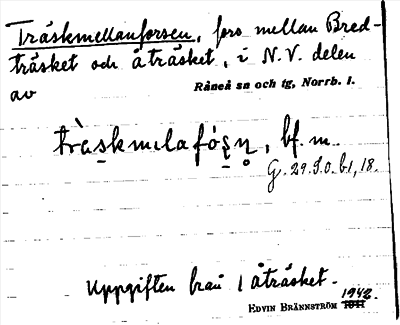 Träskmellanforsen, fors mellan Bred-
träsket och åträsket, i N.V. delen
av
Råneå sn och tg, Norrb. l.
tràskmelafó̀ṣṇ, bf. m.
G. 29.
Uppgiften från 1 åträsket.
EDVIN BRÄNNSTRÖM 1942.